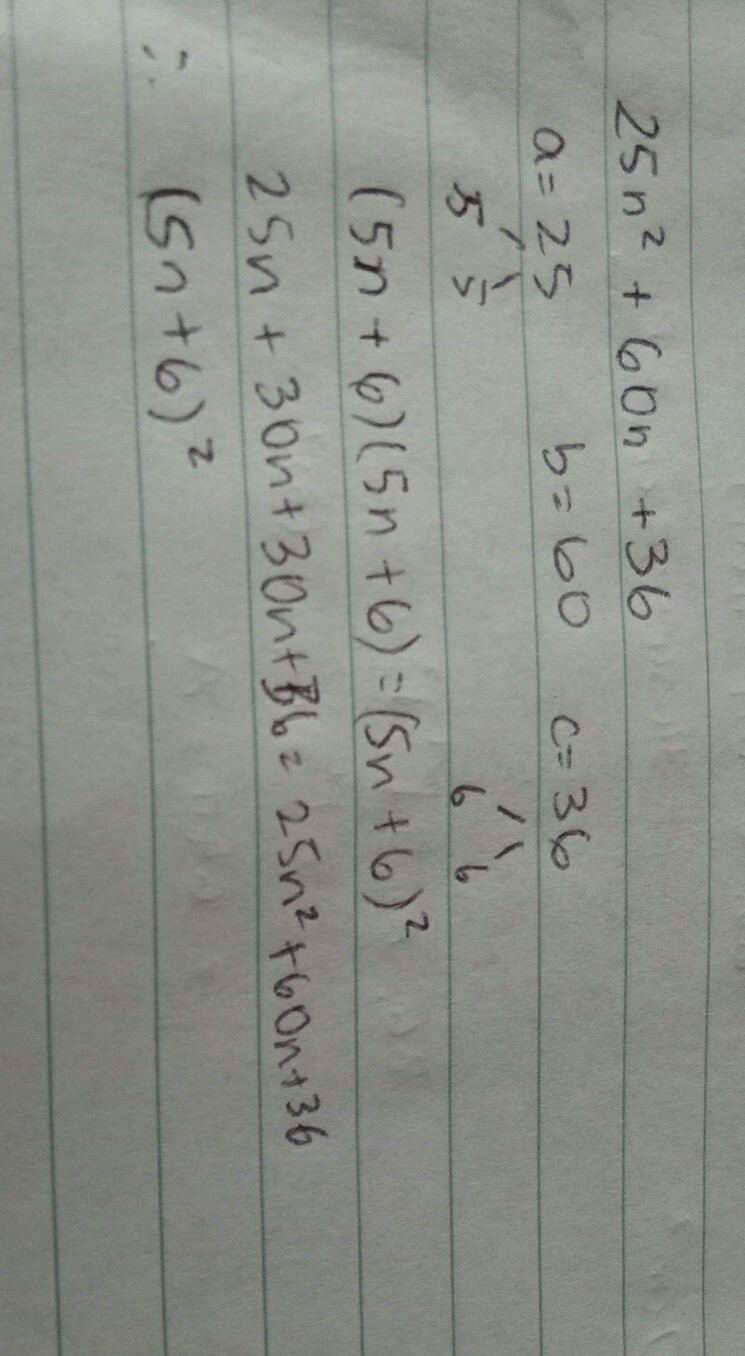 25n² + 60n + 36
a = 25 b = 60 c = 36
5 5 6 6
(5n + 6)(5n + 6) = (5n + 6)²
25n + 30n + 30n + 36 = 25n² + 60n + 36
∴ (5n + 6)²